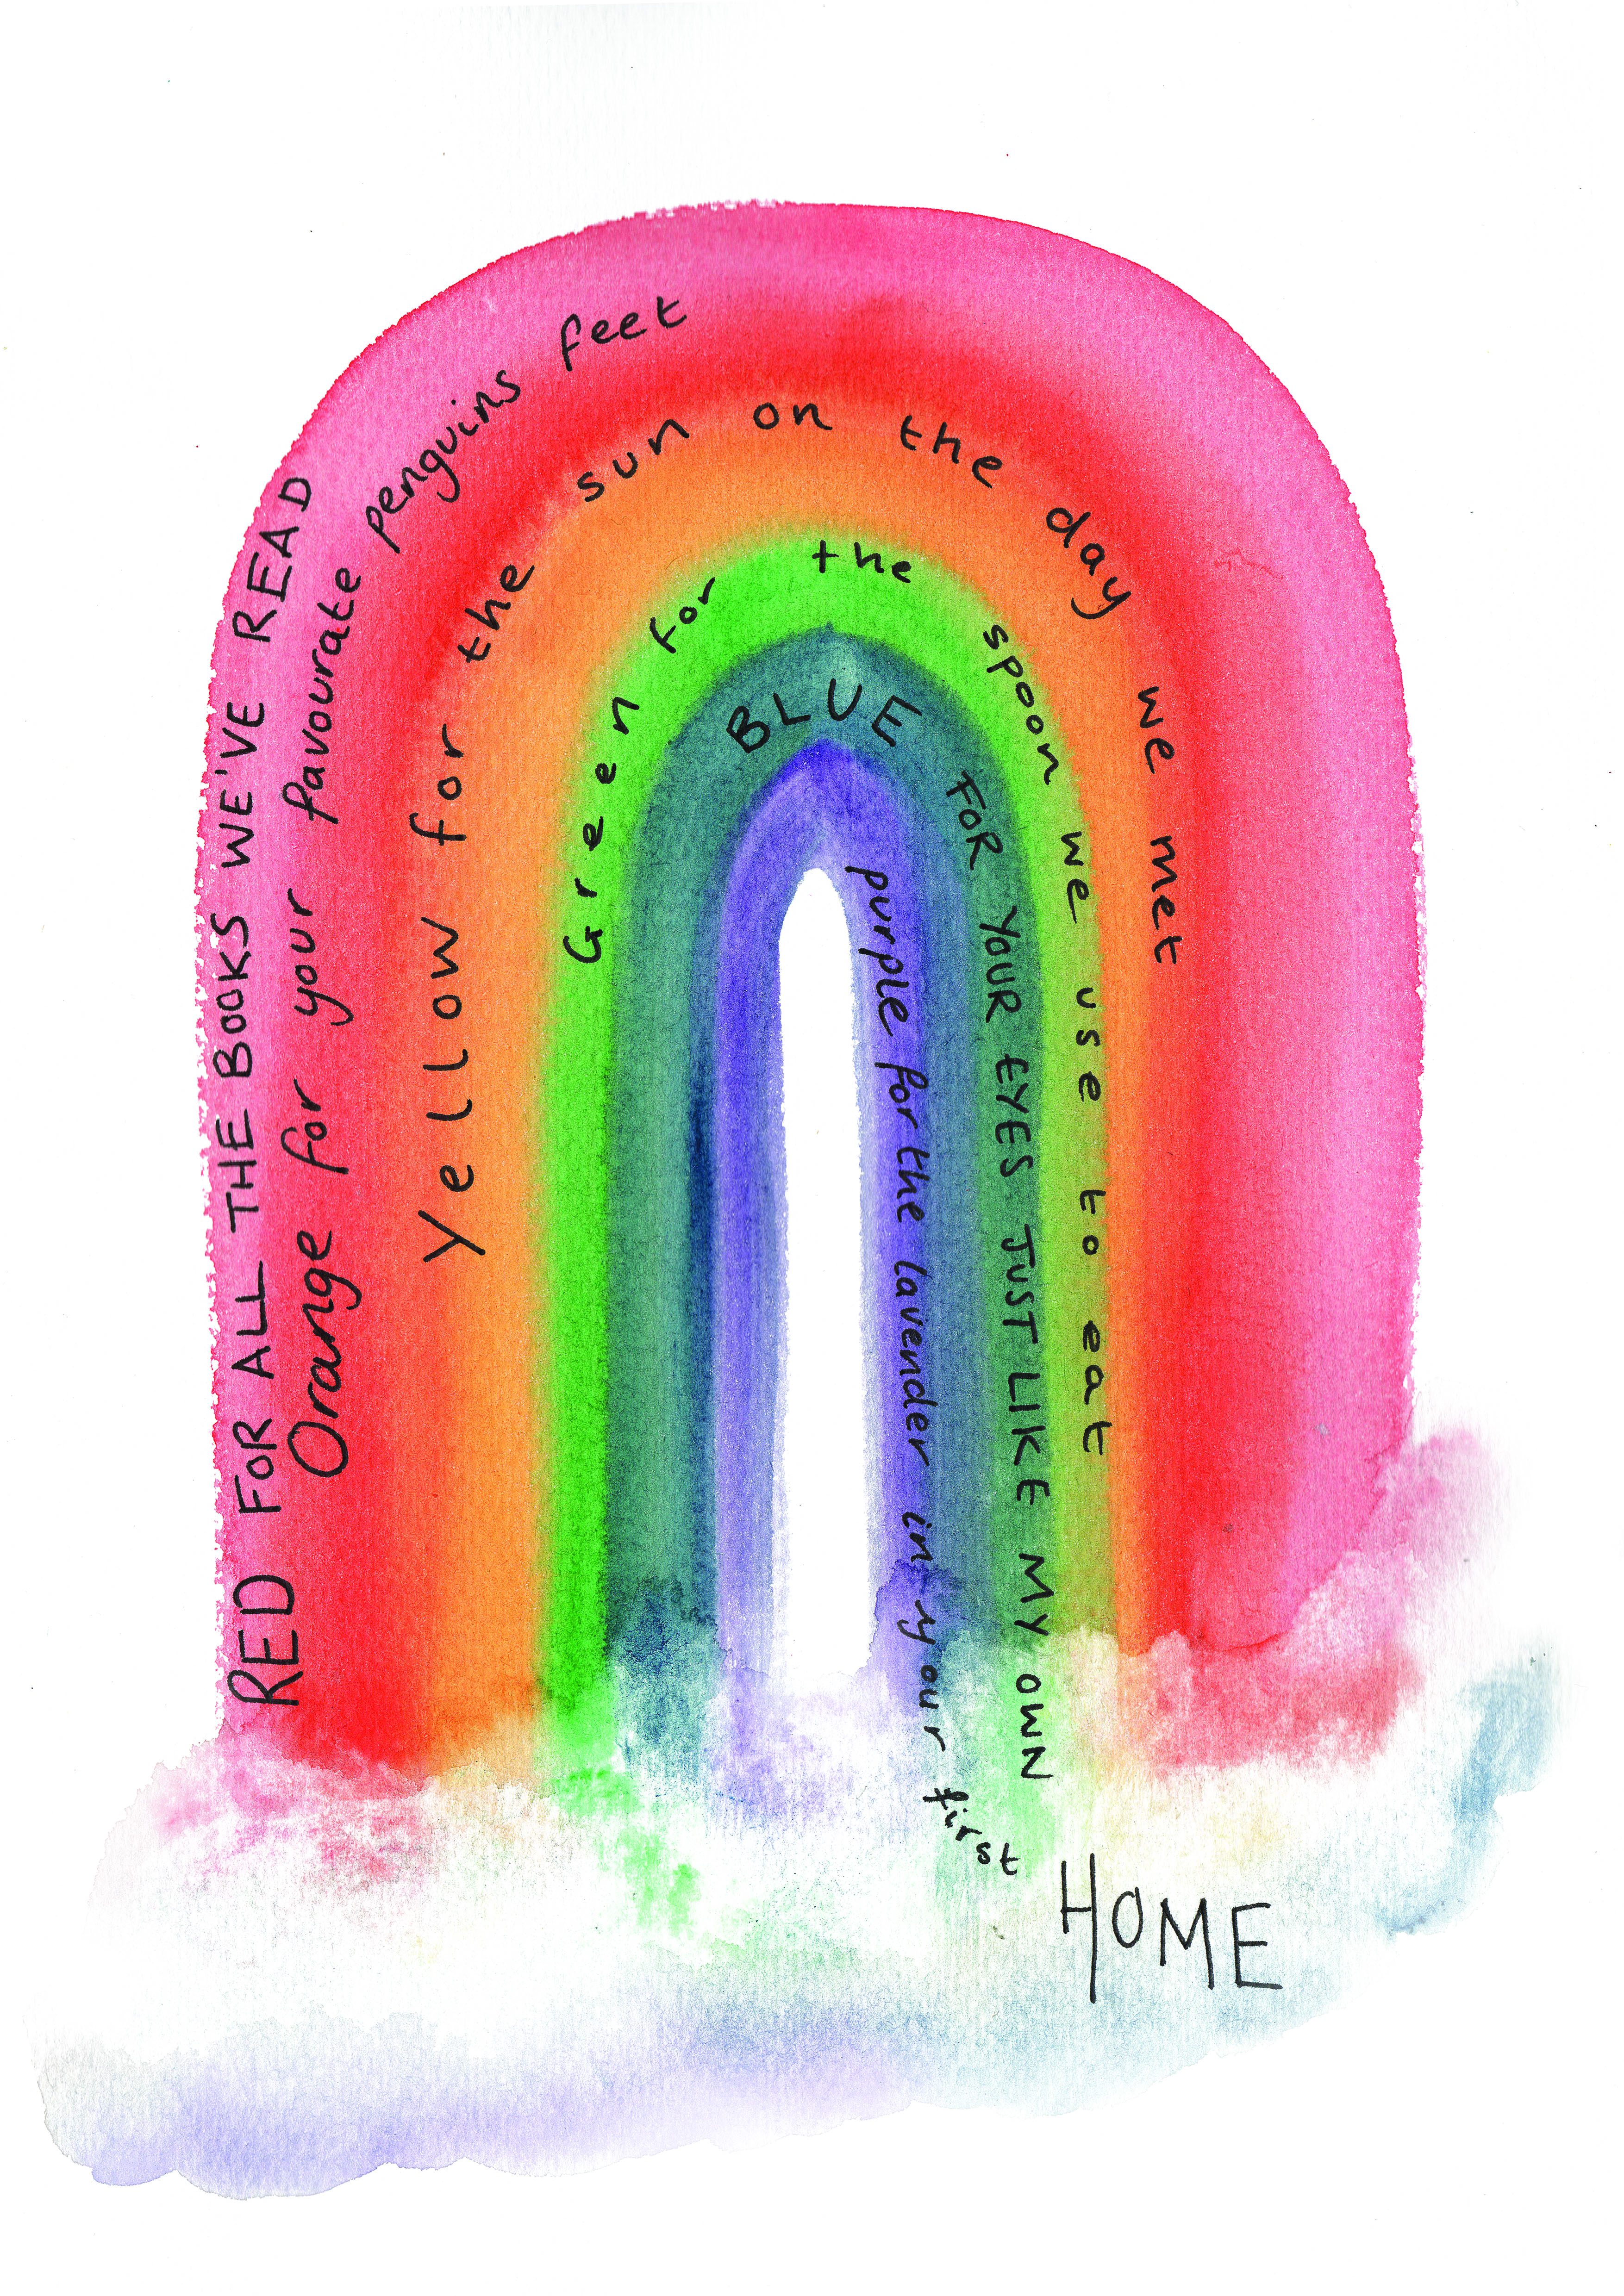 RED FOR ALL THE BOOKS WE'VE READ
Orange for your favourate penguins feet
Yellow for the sun on the day we met
Green for the spoon we use to eat
BLUE FOR YOUR EYES JUST LIKE MY OWN
purple for the lavender in your first HOME